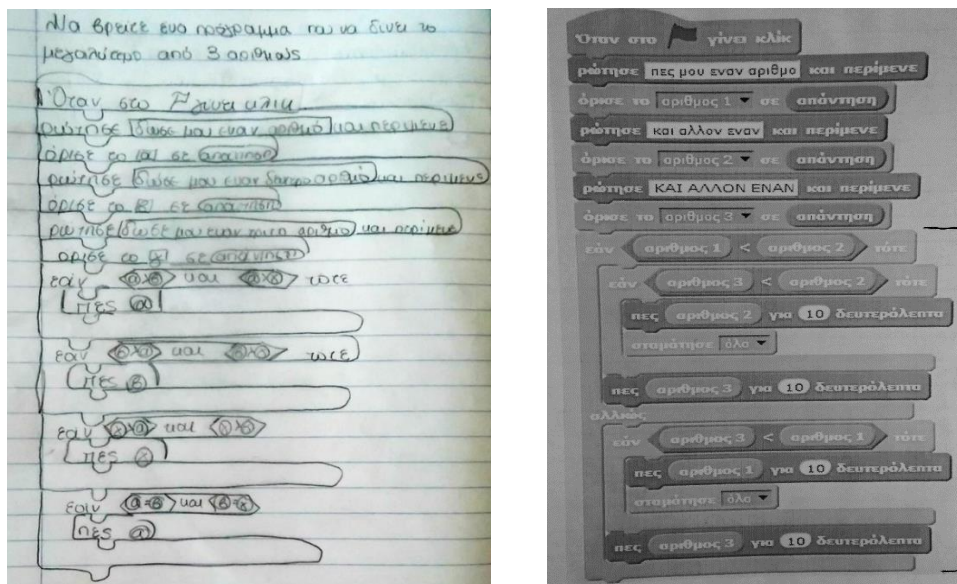 Να βρείτε ενα πρόγραμμα που να δίνει το
μεγαλύτερο από 3 αριθμούς
Όταν στο γίνει κλικ
ρώτησε δώσε μου εναν αριθμό και περίμενε
όρισε το α σε απάντηση
ρώτησε δώσε μου εναν δευτερο αριθμό και περίμενε
όρισε το β σε απάντηση
ρώτησε δώσε μου εναν τριτο αριθμό και περίμενε
όρισε το γ σε απάντηση
εάν α>β και α>γ τότε
πες α
εάν β>α και β>γ τότε
πες β
εάν γ>α και γ>β
πες γ
εάν α=β και β=γ
πες α
Όταν στο γίνει κλίκ
ρώτησε πες μου εναν αριθμο και περίμενε
όρισε το αριθμος 1 σε απάντηση
ρώτησε και αλλον εναν και περίμενε
όρισε το αριθμος 2 σε απάντηση
ρώτησε ΚΑΙ ΑΛΛΟΝ ΕΝΑΝ και περίμενε
όρισε το αριθμος 3 σε απάντηση
εάν αριθμος 1 < αριθμος 2 τότε
εάν αριθμος 3 < αριθμος 2 τότε
πες αριθμος 2 για 10 δευτερόλεπτα
σταμάτησε όλο
πες αριθμος 3 για 10 δευτερόλεπτα
αλλιώς
εάν αριθμος 3 < αριθμος 1 τότε
πες αριθμος 1 για 10 δευτερόλεπτα
σταμάτησε όλο
πες αριθμος 3 για 10 δευτερόλεπτα